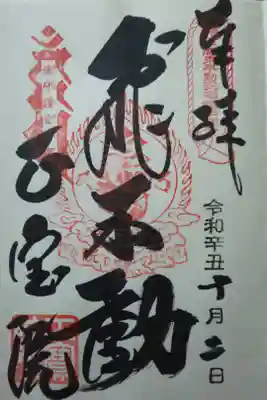 奉拝
令和辛丑十月二日
飛不動
正宝院